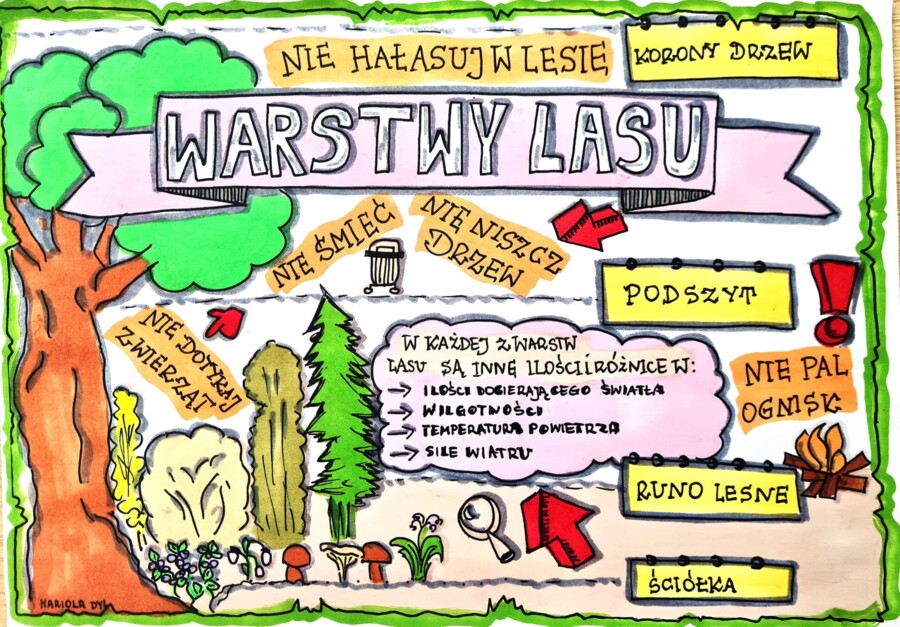 NIE HAŁASUJ W LESIE
KORONY DRZEW
WARSTWY LASU
NIE ŚMIEĆ
NIE NISZCZ
DRZEW
PODSZYT
NIE DOTYKAJ
ZWIERZĄT
W KAŻDEJ Z WARSTW
LASU SĄ INNE ILOŚCI I RÓŻNICE W:
→ ILOŚCI DOCIERAJĄCEGO ŚWIATŁA
→ WILGOTNOŚCI
→ TEMPERATURA POWIETRZA
→ SILE WIATRU
NIE PAL
OGNISK
RUNO LEŚNE
ŚCIÓŁKA
MARIOLA